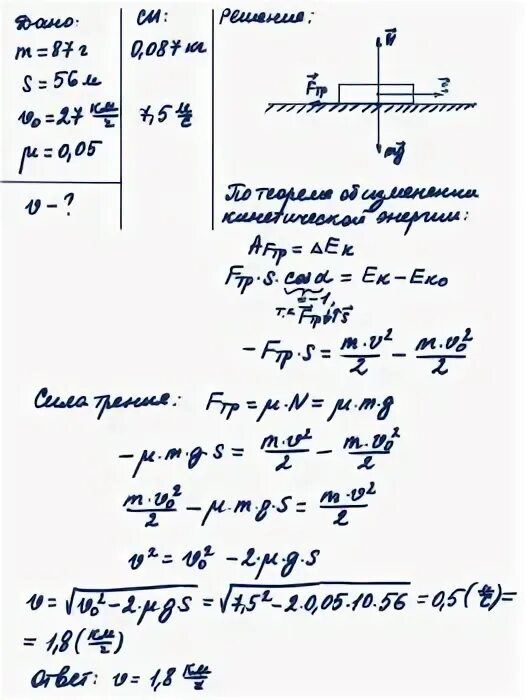 Дано: СИ: Решение:
m = 87 г 0,087 кг
S = 56 м
v₀ = 27 км/ч 7,5 м/с
μ = 0,05
v - ?
N⃗
F⃗тр
S⃗
mg⃗
По теореме об изменении
кинетической энергии:
AFтр = ΔEк
Fтр · S · cosα = Eк − Eк₀
= −1,
т.к. F⃗тр↓↑S⃗
− Fтр · S = m·v²/2 − m·v₀²/2
Сила трения: Fтр = μ · N = μ · m · g
− μ · m · g · S = m·v²/2 − m·v₀²/2
m·v₀²/2 − μ · m · g · S = m·v²/2
v² = v₀² − 2 · μ · g · S
v = √(v₀² − 2 · μ g · S) = √(7,5² − 2 · 0,05 · 10 · 56) = 0,5 (м/с) =
= 1,8 (км/ч)
Ответ: v = 1,8 км/ч